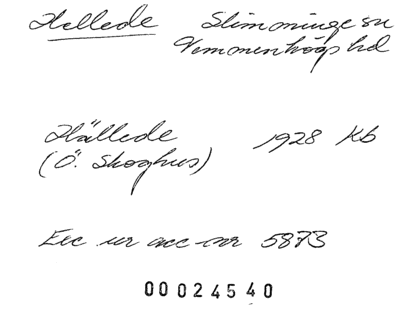 Hellede Slimminge sn
Vemmenhögs hd
Hällede 1928 Kb
(Ö. Skoghus)
Exc ur acc-nr 5873
00024540